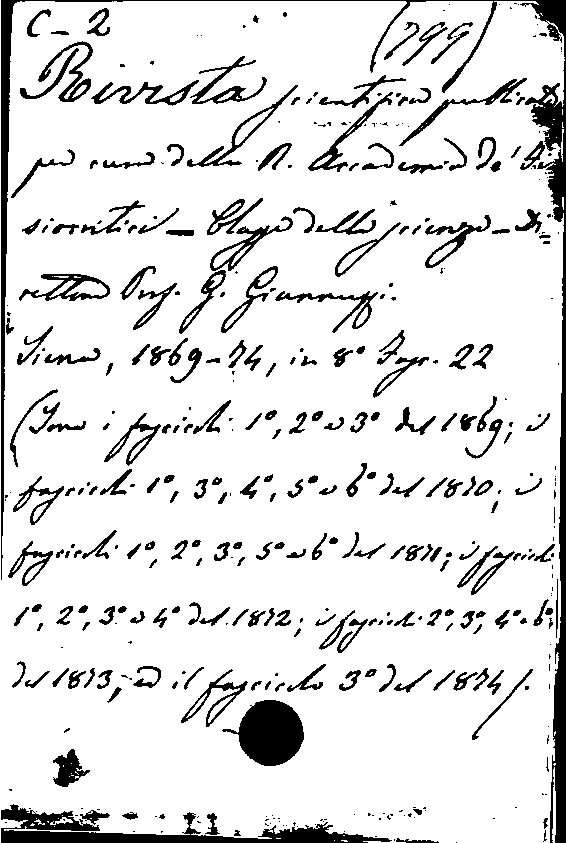 C - 2 (799)
Rivista scientifica pubblicata
per cura della R. Accademia de' Fi-
siocritici — Classe delle scienze — Di=
rettore Prof. G. Giannuzzi.
Siena, 1869-74, in 8° Fasc. 22
(Sono i fascicoli 1°, 2° e 3° del 1869; i
fascicoli 1°, 3°, 4°, 5° e 6° del 1870; i
fascicoli 1°, 2°, 3°, 5° e 6° del 1871; i fascicoli
1°, 2°, 3° e 4° del 1872; i fascicoli 2°, 3°, 4° e 6°
del 1873, ed il fascicolo 3° del 1874).